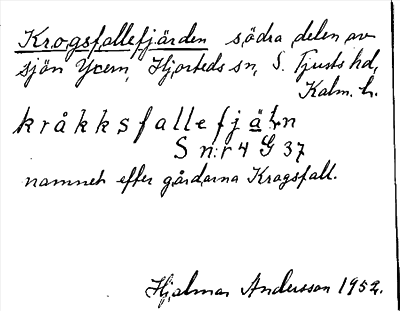 Krogsfallefjärden södra delen av
sjön Yxern, Hjorteds sn, S. Tjusts hd,
Kalm. l.
kråkksfallefjäḷn
S n:r 4 G 37
namnet efter gårdarna Kragsfall.
Hjalmar Andersson 1952.